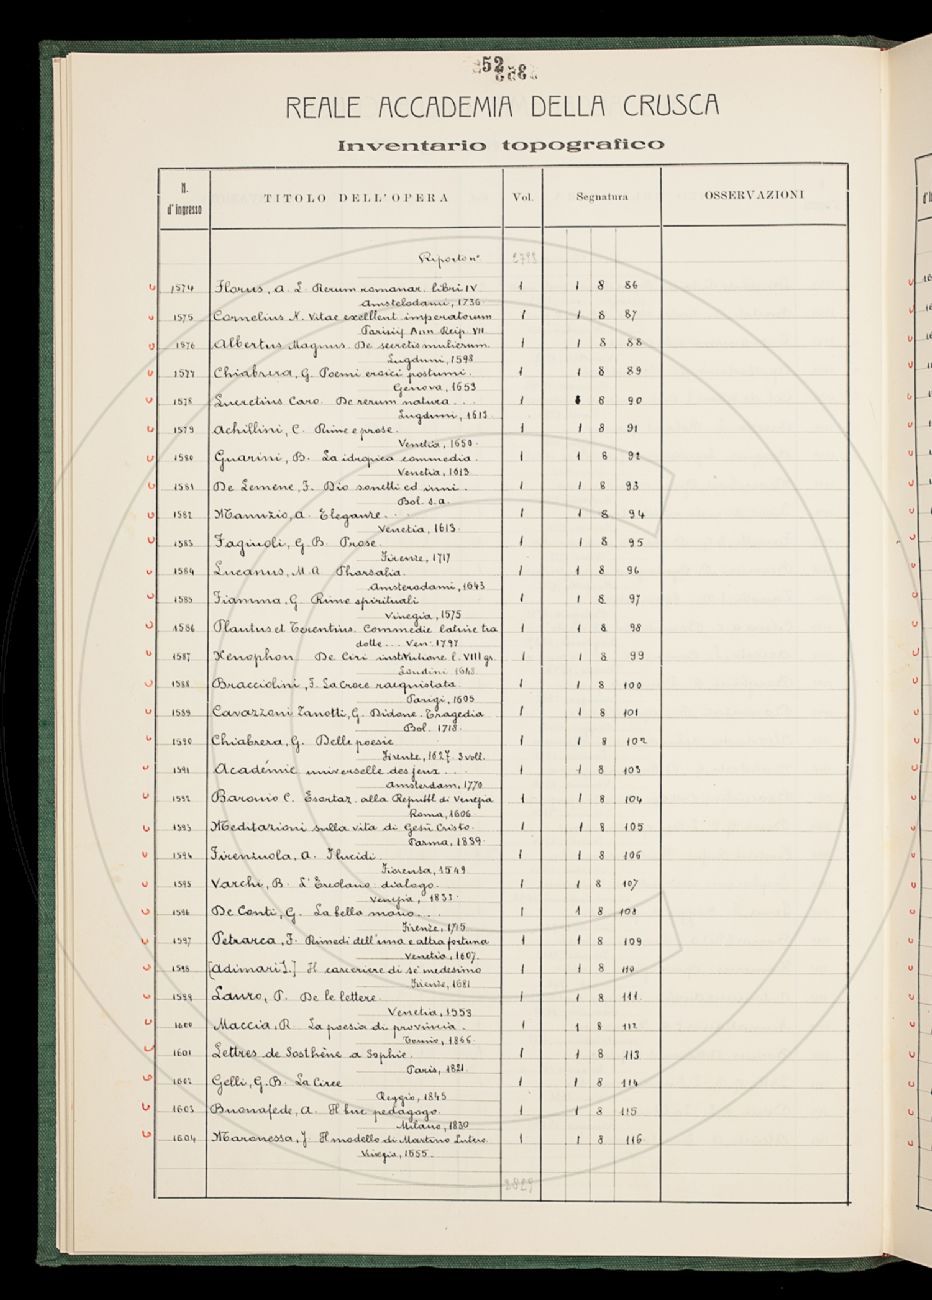 52
REALE ACCADEMIA DELLA CRUSCA
Inventario topografico
N. d'ingresso TITOLO DELL'OPERA Vol. Segnatura OSSERVAZIONI
Riporto n°
1574 Florus, A. L. Rerum romanar. libri IV 1 1 8 86
Amstelodami, 1736
1575 Cornelius N. Vitae excellent imperatorum 1 1 8 87
Parisij Ann Reip. VII
1576 Albertus Magnus. De secretis mulierum 1 1 8 88
Lugduni, 1598
1577 Chiabrera, G. Poemi eroici postumi. 1 1 8 89
Genova, 1653
1578 Lucretius Caro. De rerum natura ... 1 8 90
Lugduni, 1613
1579 Achillini, C. Rime e prose. 1 1 8 91
Venetia, 1650.
1580 Guarini, B. La idropica commedia. 1 1 8 92
Venetia, 1613
1581 De Lemene, F. Dio sonetti ed inni. 1 1 8 93
Bol. s.a.
1582 Manuzio, A. Eleganze. .. 1 1 8 94
Venetia, 1613.
1583 Fagiuoli, G.B. Prose. 1 1 8 95
Firenze, 1717
1584 Lucanus, M.A. Pharsalia. 1 1 8 96
Amsterodami, 1643
1585 Fiamma, G. Rime spirituali 1 1 8 97
Vinegia, 1575
1586 Plautus et Terentius. Commedie latine tra 1 1 8 98
dotte... Ven. 1797
1587 Xenophon. De Ciri institutione l. VIII gr. 1 1 8 99
Londini
1588 Bracciolini, F. La Croce racquistata. 1 1 8 100
Parigi, 1605
1589 Cavazzoni Zanotti, G. Didone. Tragedia 1 1 8 101
Bol. 1718.
1590 Chiabrera, G. Delle poesie 1 1 8 102
Firenze, 1627. 3 voll.
1591 Académie universelle des jeux ... 1 1 8 103
Amsterdam, 1770
1592 Baronio C. Esortaz. alla Republ. di Venezia 1 1 8 104
Roma, 1606
1593 Meditazioni sulla vita di Gesù Cristo. 1 1 8 105
Parma, 1839.
1594 Firenzuola, A. I lucidi. 1 1 8 106
Fiorenza, 1549
1595 Varchi, B. L'Ercolano: dialogo. 1 1 8 107
Venezia, 1833.
1596 De Conti, G. La bella mano... 1 1 8 108
Firenze, 1715
1597 Petrarca, F. Rimedi dell'una e altra fortuna 1 1 8 109
Venetia, 1607.
1598 [Adimari L.] Il carceriere di sè medesimo 1 1 8 110
Firenze, 1681
1599 Lauro, P. De le lettere. 1 1 8 111.
Venetia, 1553
1600 Maccia, R. La poesia di provincia. 1 1 8 112
1866.
1601 Lettres de Sosthène a Sophie. 1 1 8 113
Paris, 1821.
1602 Gelli, G.B. La Circe 1 1 8 114
Reggio, 1845
1603 Buonafede, A. Il bue pedagogo. 1 1 8 115
Milano, 1830
1604 Maronessa, J. Il modello di Martino Lutero. 1 1 8 116
Vinegia, 1555.
2829